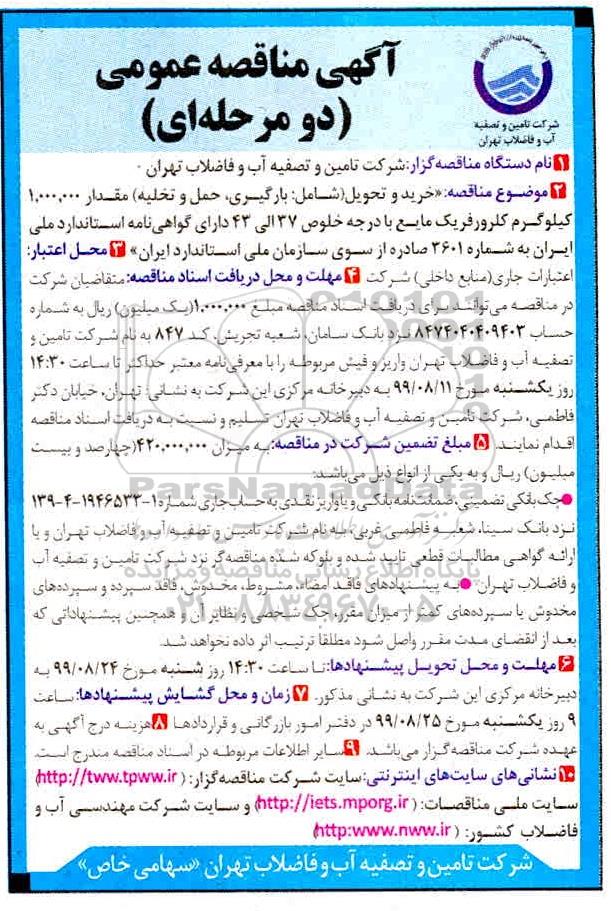 آگهی مناقصه عمومی
(دو مرحله‌ای)
شرکت تامین و تصفیه
آب و فاضلاب تهران
۱ نام دستگاه مناقصه‌گزار: شرکت تامین و تصفیه آب و فاضلاب تهران -
۲ موضوع مناقصه: «خرید و تحویل(شامل: بارگیری، حمل و تخلیه) مقدار ۱,۰۰۰,۰۰۰
کیلوگرم کلرورفریک مایع با درجه خلوص ۳۷ الی ۴۳ دارای گواهی‌نامه استاندارد ملی
ایران به شماره ۳۶۰۱ صادره از سوی سازمان ملی استاندارد ایران» ۳ محل اعتبار:
اعتبارات جاری(منابع داخلی) شرکت ۴ مهلت و محل دریافت اسناد مناقصه: متقاضیان شرکت
در مناقصه می‌توانند برای دریافت اسناد مناقصه مبلغ ۱,۰۰۰,۰۰۰(یک میلیون) ریال به شماره
حساب ۸۴۷۴۰۴۰۴۰۹۴۰۳ نزد بانک سامان، شعبه تجریش، کد ۸۴۷ به نام شرکت تامین و
تصفیه آب و فاضلاب تهران واریز و فیش مربوطه را با معرفی‌نامه معتبر حداکثر تا ساعت ۱۴:۳۰
روز یکشنبه مورخ ۹۹/۰۸/۱۱ به دبیرخانه مرکزی این شرکت به نشانی: تهران، خیابان دکتر
فاطمی، شرکت تامین و تصفیه آب و فاضلاب تهران تسلیم و نسبت به دریافت اسناد مناقصه
اقدام نمایند. ۵ مبلغ تضمین شرکت در مناقصه: به میزان ۴۲۰,۰۰۰,۰۰۰(چهارصد و بیست
میلیون) ریال و به یکی از انواع ذیل می‌باشد:
●چک بانکی تضمینی، ضمانت‌نامه بانکی و یا واریز نقدی به حساب جاری شماره ۱-۱۹۴۶۵۳۳-۴-۱۳۹
نزد بانک سینا، شعبه فاطمی غربی، به نام شرکت تامین و تصفیه آب و فاضلاب تهران و یا
ارائه گواهی مطالبات قطعی تایید شده و بلوکه شده مناقصه‌گر نزد شرکت تامین و تصفیه آب
و فاضلاب تهران ●به پیشنهادهای فاقد امضا، مشروط، مخدوش، فاقد سپرده و سپرده‌های
مخدوش یا سپرده‌های کمتر از میزان مقرر، چک شخصی و نظایر آن و همچنین پیشنهاداتی که
بعد از انقضای مدت مقرر واصل شود مطلقا ترتیب اثر داده نخواهد شد.
۶ مهلت و محل تحویل پیشنهادها: تا ساعت ۱۴:۳۰ روز شنبه مورخ ۹۹/۰۸/۲۴ به
دبیرخانه مرکزی این شرکت به نشانی مذکور. ۷ زمان و محل گشایش پیشنهادها: ساعت
۹ روز یکشنبه مورخ ۹۹/۰۸/۲۵ در دفتر امور بازرگانی و قراردادها ۸ هزینه درج آگهی به
عهده شرکت مناقصه‌گزار می‌باشد. ۹ سایر اطلاعات مربوطه در اسناد مناقصه مندرج است.
۱۰ نشانی‌های سایت‌های اینترنتی: سایت شرکت مناقصه‌گزار: (http://tww.tpww.ir)
سایت ملی مناقصات: (http://iets.mporg.ir) و سایت شرکت مهندسی آب و
فاضلاب کشور: (http:www.nww.ir)
شرکت تامین و تصفیه آب و فاضلاب تهران «سهامی خاص»
ParsNamadData
پایگاه اطلاع رسانی مناقصه و مزایده
۰۲۱-۸۸۳۴۹۶۷۰-۵